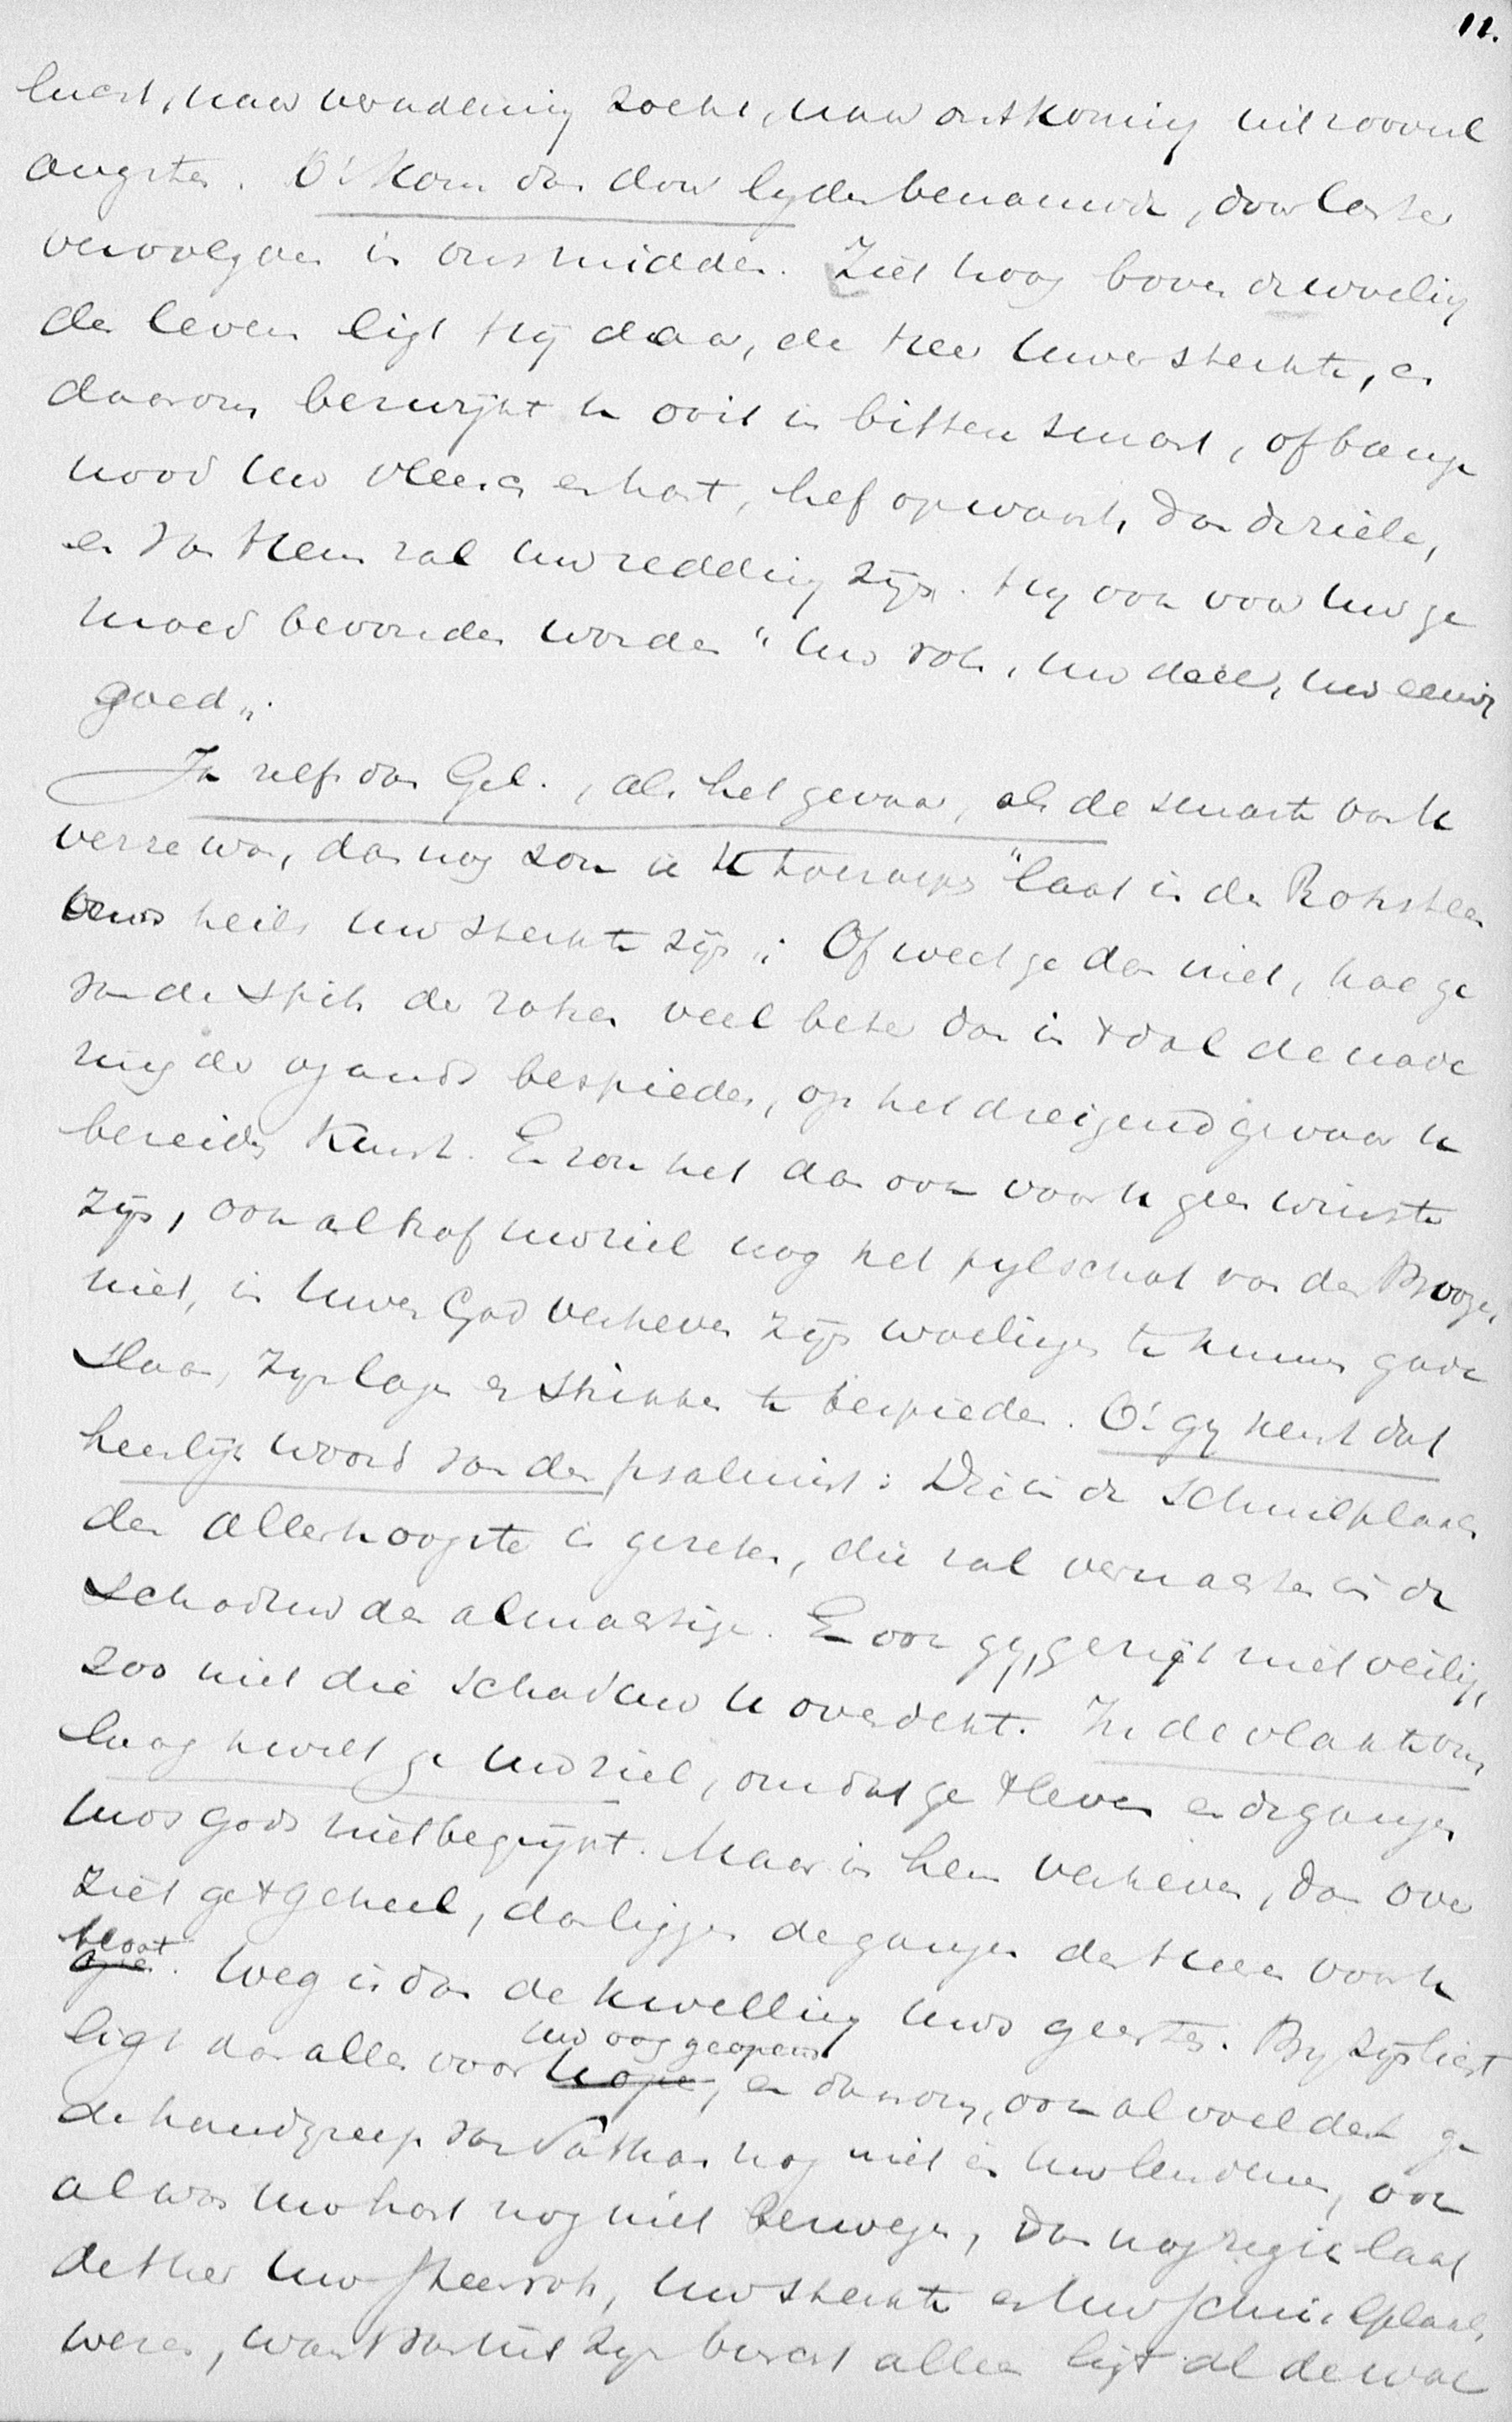 11.
zocht, naar ontkoming uit zooveel
angsten. O! Kom dan door lyden benauwde, door laster
vervolgde in ons midden. Ziet hoog boven de woeling
des levens ligt Hij daar, de Heer uwer sterkte, en
daarom bezwijkt u ooit in bittren smart, of bange
nood uw vleesch en hart, hef opwaarts dan de ziele,
en van Hem zal uw redding zijn. Hy ook voor uw ge
moed bevonden worden "uw rots, uw deel, uw eeuwig
goed„.
Ja zelfs dan Gel., als het gevaar, als de smarte van u
verre was, dan nog zou ik U toeroepen "laat in den Rotssteen
uws heils uw sterkte zijn„! Of weet ge dan niet, hoe ge
van de spits der rotsen veel beter dan in 't dal de nade
ring des vyands bespieden, op het dreigend gevaar u
bereiden kunt. En zou het dan ook voor u geen winste
zijn, ook al trof uw ziel nog het pylschot van den Booze
niet, in uwen God verheven zijn woelingen te kunnen gade
slaan, zyn lagen en strikken te bespieden. O! gy kent dat
heerlijk woord van den psalmist: Die in de schuilplaats
des Allerhoogsten is gezeten, die zal vernachten in de
schaduw des almachtigen. En ook gy, ge zijt niet veilig,
zoo niet die schaduw u overdekt. In de vlakte om
laag kwelt ge uw ziel, omdat ge 't leven en de gangen
uws Gods niet begrijpt. Maar in hem verheven, dan over
ziet ge 't geheel, dan liggen de gangen des Heeren voor u
bloot. Weg is dan de kwelling uws geestes. By zijn licht
ligt dan alles voor uw oog geopend, en daarom, ook al voeldet ge
de handgreep van Sathan nog niet in uw lendenen, ook
al was uw hart nog niet bewogen, dan nog zeg ik laat
de Heer uw steenrots, uw sterkte en uw schuilplaats
wezen, want vanuit zyn burcht alleen ligt al de woe